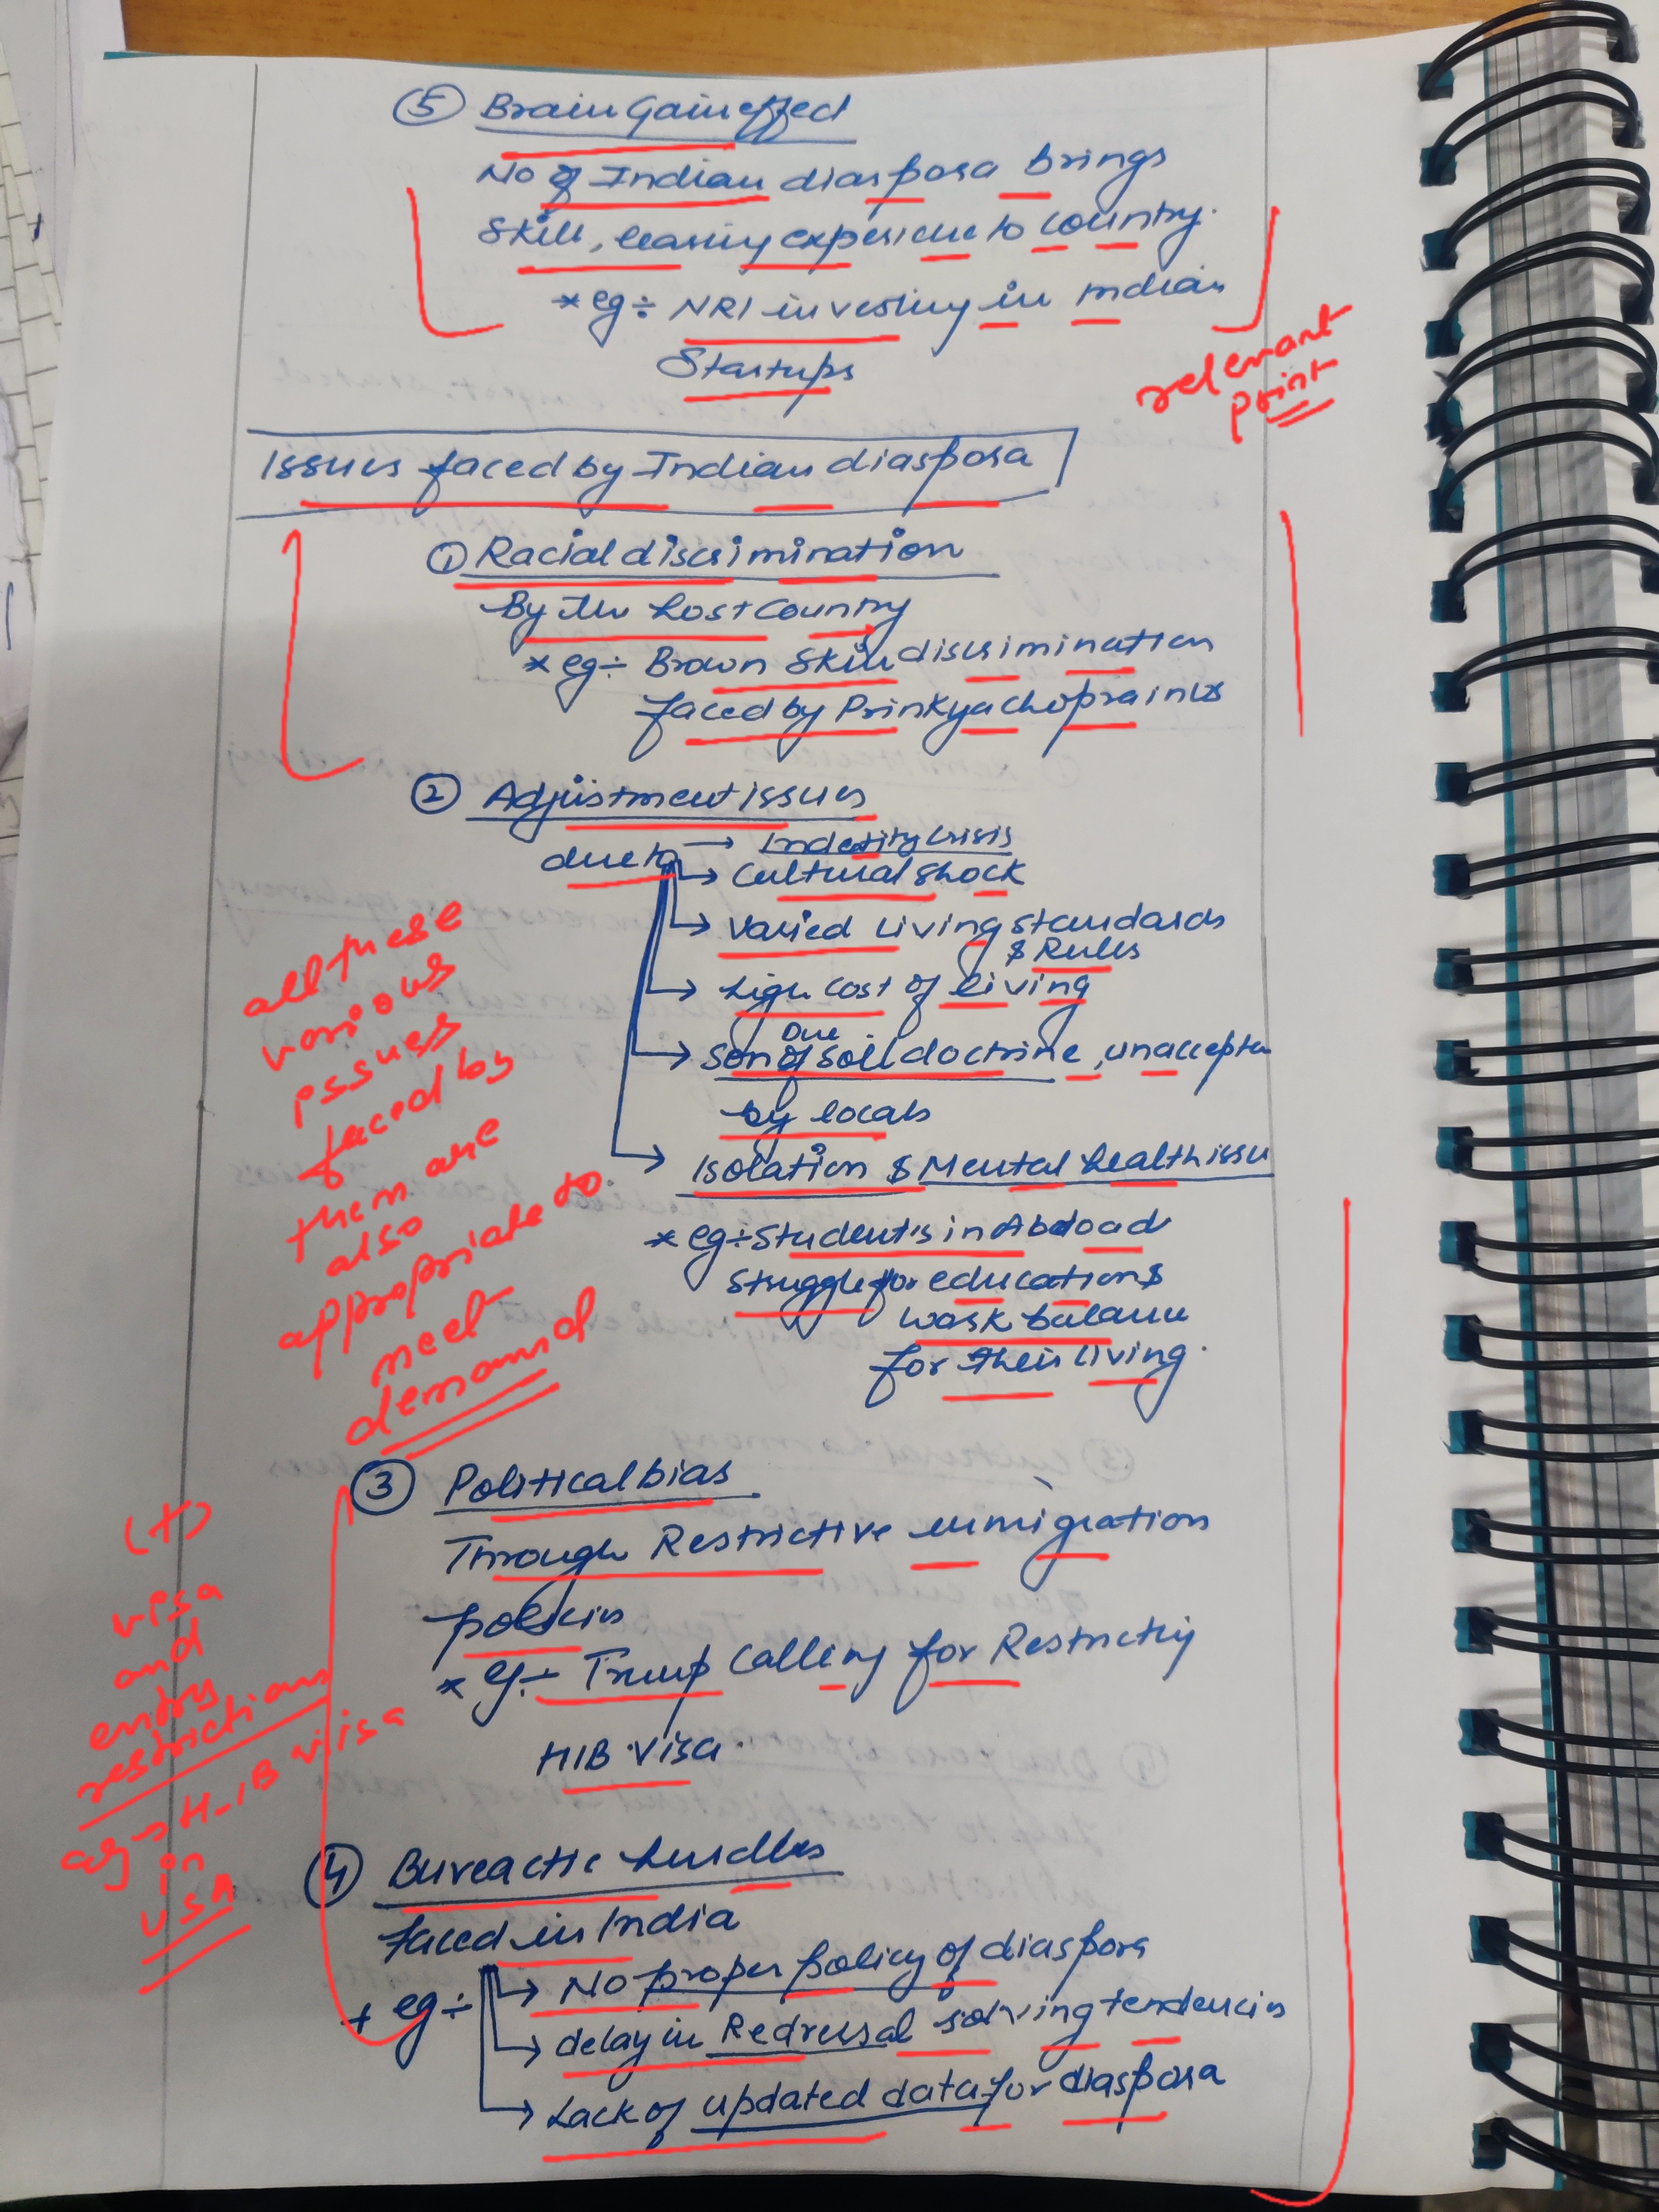 ⑤ Brain Gain effect
No of Indian diaspora brings
Skill, learing experience to country.
* eg ÷ NRI investing in Indian
Startups
relevant
point
Issues faced by Indian diaspora
① Racial discrimination
By the host country
* eg ÷ Brown Skin discrimination
faced by Prinkya chopra in US
② Adjustment issues
due to → Indetity crisis
→ Cultural shock
→ Varied living standards
& Rules
→ high cost of living
Due
→ Son of soil doctrine, unaccepten
by locals
→ Isolation & Mental health issu
* eg ÷ Student's in Abroad
Struggle for education &
work balance
for their living.
all these
various
issues
faced by
them are
also
appropriate to
meet
demand
③ Political bias
Through Restrictive immigration
policies
* eg ÷ Trump calling for Restricting
H1B Visa.
(+)
visa
and
entry
restrictions
eg → H-1B visa
in
USA
④ Bureactic hurdles
faced in India
* eg ÷ → No proper policy of diaspora
→ delay in Redressal solving tendencies
→ Lack of updated data for diaspora